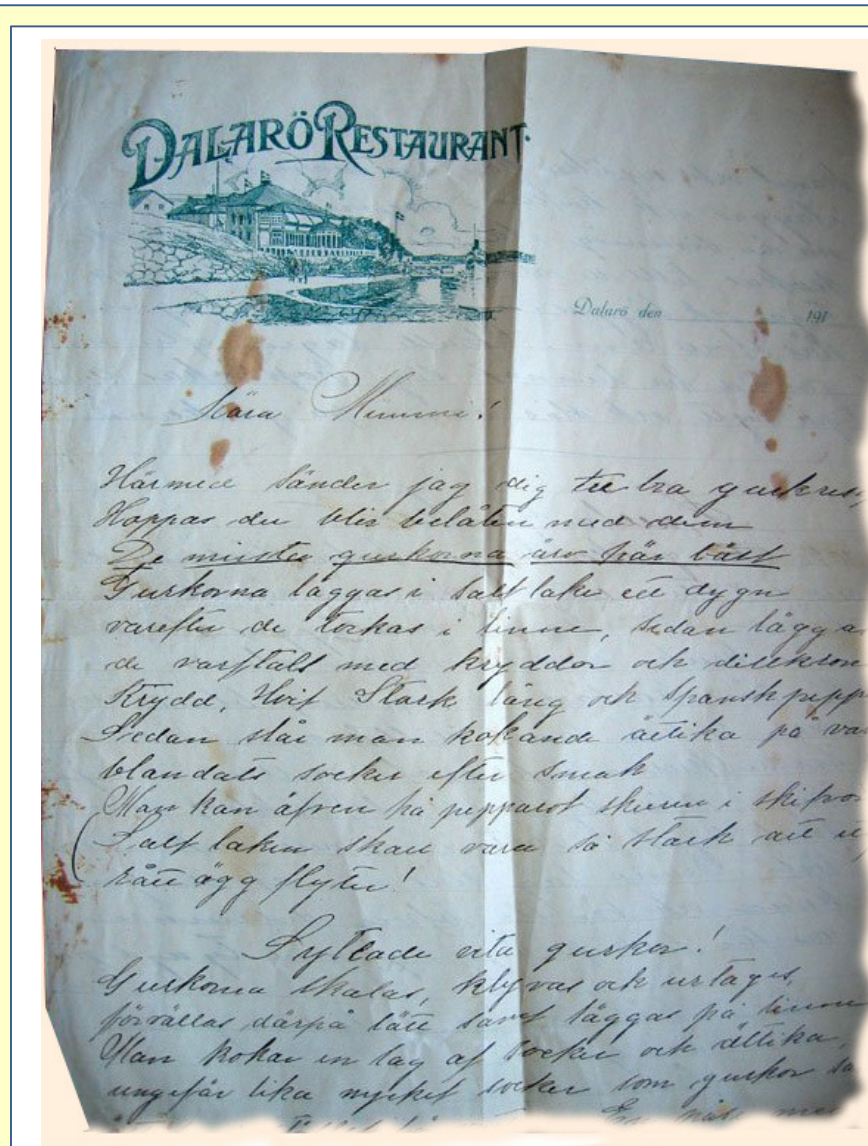 DALARÖ RESTAURANT.
Dalarö den 191
Kära Mimmi!
Härmed sänder jag dig tre bra gurkres,
Hoppas du blir belåten med dem
De minsta gurkorna äro här bäst
Gurkorna läggas i salt lake ett dygn
varefter de torkas i linne, sedan lägga
de varftals med kryddor och dillkron
Krydd, Hvit Stark lång och spansk pepp
Sedan slår man kokande ättika på var
blandats socker efter smak
Man kan äfven ha pepparot skuren i skifvo
(Salt laken skall vara så stark att e
rått ägg flyter!
Syltade vita gurkor!
Gurkorna skalas, klyvas och urtages,
förvällas därpå lätt samt läggas på linne
Man kokar en lag af socker och ättika,
ungefär lika mycket socker som gurkor sa
En